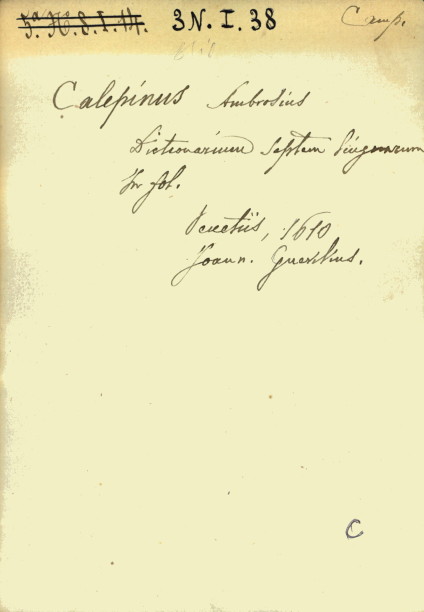 5ª H.8.I.14. 3N.I.38 Comp.
Calepinus Ambrosius
Dictionarium Septem linguarum
In fol.
Venetiis, 1610
Joann. Guerilius.
C